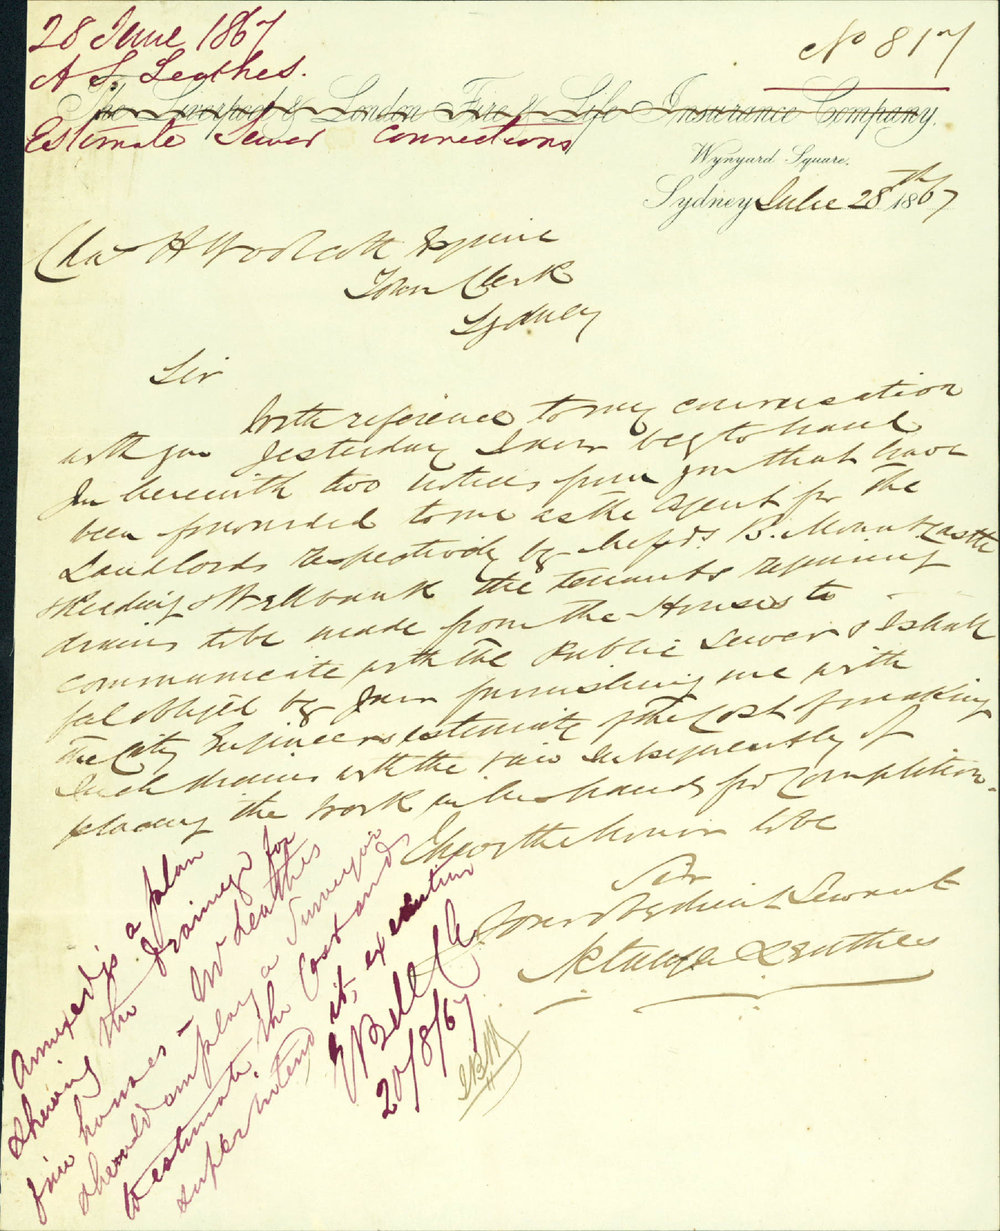 28 June 1867
No 817
A S Leathes.
The Liverpool & London Fire & Life Insurance Company.
Estimate Sewer Connections
Wynyard Square,
Sydney June 28th 1867
Chas H Woolcott Esquire
Town Clerk
Sydney
Sir
With reference to my conversation
with you Yesterday I now beg to hand
you herewith two notices from you that have
been forwarded to me as the Agent for the
Landlords respectively by Messrs B. Mountcastle
& the tenants requiring
drains to be made from the Houses to
communicate with the Public Sewer & I shall
feel obliged by your furnishing me with
the City Engineers estimate of the Cost of making
such drains with the view subsequently of
placing the work in his hands for completion.
I have the honor to be
Sir
Your Obedient Servant
Leathes
Annexed is a plan
shewing the drainage for
five houses - Mr Leathes
should employ a Surveyor
to estimate the Cost and
superintend its execution
E Bell C.E.
20/8/67